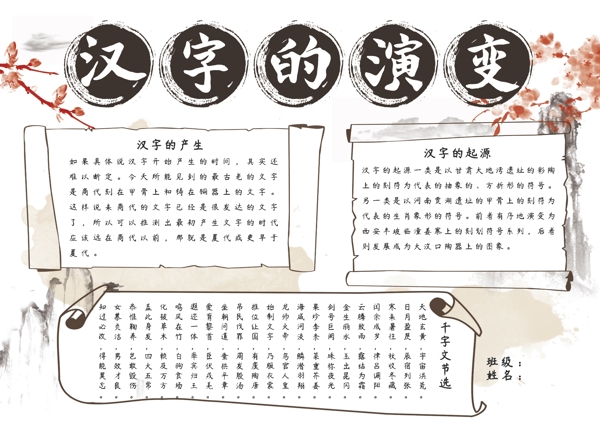 汉字的演变
汉字的产生
如果具体说汉字开始产生的时间，其实还
难以断定。今天所能见到的最古老的文字
是商代刻在甲骨上和铸在铜器上的文字。
这样说来商代的文字已经是很发达的文字
了，所以可以推测出最初产生文字的时代
应该远在商代以前，那就是夏代或更早于
夏代。
汉字的起源
汉字的起源一类是以甘肃大地湾遗址的彩陶
上的刻符为代表的抽象的、方折形的符号。
另一类是以河南贾湖遗址的甲骨上的刻符为
代表的生肖象形的符号。前者有序地演变为
西安半坡临潼姜寨上的刻划符号系列，后者
则发展成为大汶口陶器上的图象。
千字文节选
天地玄黄，宇宙洪荒。
日月盈昃，辰宿列张。
寒来暑往，秋收冬藏。
闰余成岁，律吕调阳。
云腾致雨，露结为霜。
金生丽水，玉出昆冈。
剑号巨阙，珠称夜光。
果珍李柰，菜重芥姜。
海咸河淡，鳞潜羽翔。
龙师火帝，鸟官人皇。
始制文字，乃服衣裳。
推位让国，有虞陶唐。
吊民伐罪，周发殷汤。
坐朝问道，垂拱平章。
爱育黎首，臣伏戎羌。
遐迩一体，率宾归王。
鸣凤在竹，白驹食场。
化被草木，赖及万方。
盖此身发，四大五常。
恭惟鞠养，岂敢毁伤。
女慕贞洁，男效才良。
知过必改，得能莫忘。
班级：
姓名：